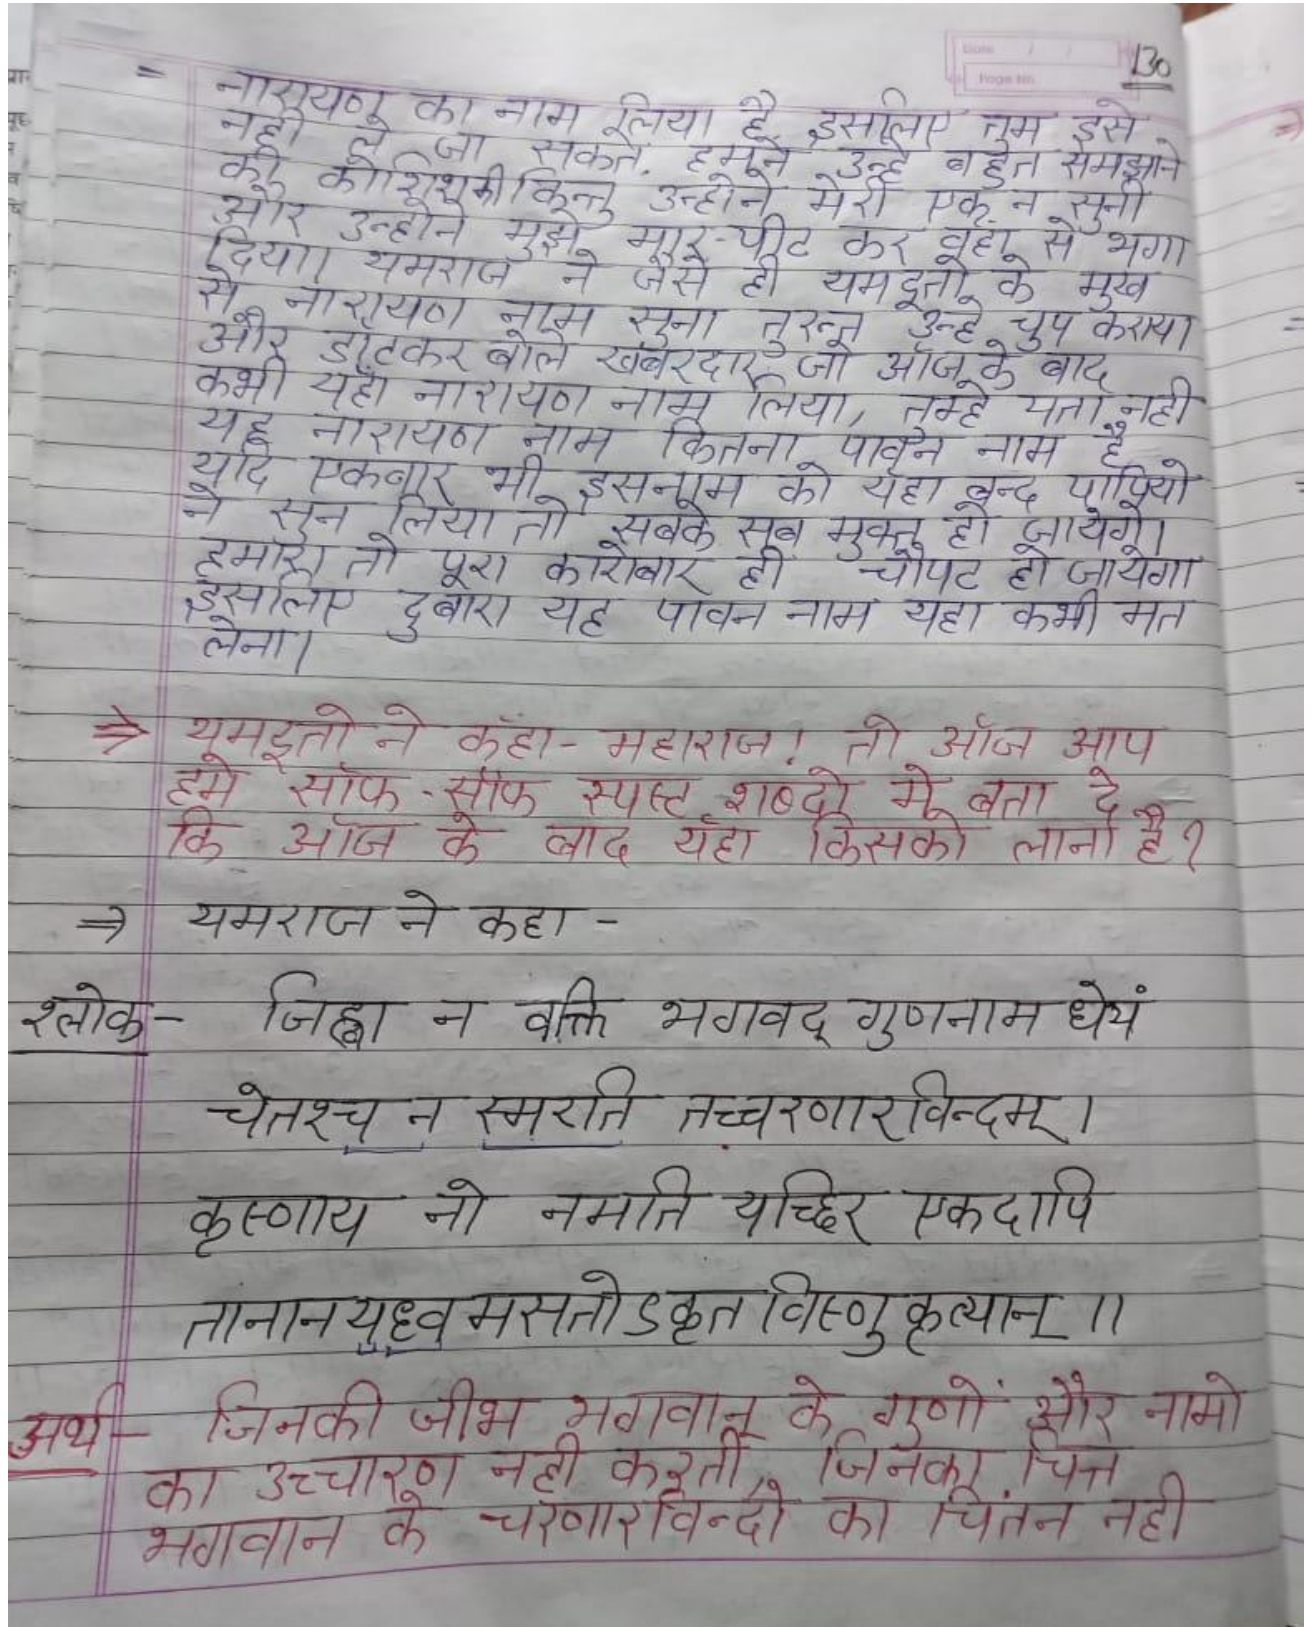 Date / /
Page No.
130
= नारायण का नाम लिया है इसलिए तुम इसे
नही ले जा सकते. हमने उन्हे बहुत समझाने
की कोशिश की किन्तु उन्होने मेरी एक न सुनी
और उन्होने मुझे मार-पीट कर वहा से भगा
दिया। यमराज ने जैसे ही यमदूतो के मुख
से नारायण नाम सुना तुरन्त उन्हे चुप कराया
और डॉटकर बोले खबरदार जो ऑज के बाद
कभी यहाँ नारायण नाम लिया, तुम्हे पता नही
यह नारायण नाम कितना पावन नाम है
यदि एकबार भी इसनाम को यहा बन्द पापियो
ने सुन लिया तो सबके सब मुक्त हो जायेगे।
हमारा तो पूरा कारोबार ही चौपट हो जायेगा
इसलिए दुबारा यह पावन नाम यहा कभी मत
लेना।
⇒ यमदूतो ने कहा - महाराज! तो ऑज आप
हमे सॉफ-सॉफ स्पस्ट शब्दो मे बता दे
कि ऑज के बाद यहाँ किसको लाना है?
⇒ यमराज ने कहा -
श्लोक - जिह्वा न वक्ति भगवद् गुणनाम धेयं
चेतश्च न स्मरति तच्चरणारविन्दम्।
कृस्णाय नो नमति यच्छिर एकदापि
तानानयध्वमसतोऽकृत विस्णु कृत्यान् ॥
अर्थ - जिनकी जीभ भगवान् के गुणों और नामो
का उच्चारण नही करती, जिनका चित्त
भगवान के चरणारविन्दो का चिंतन नही